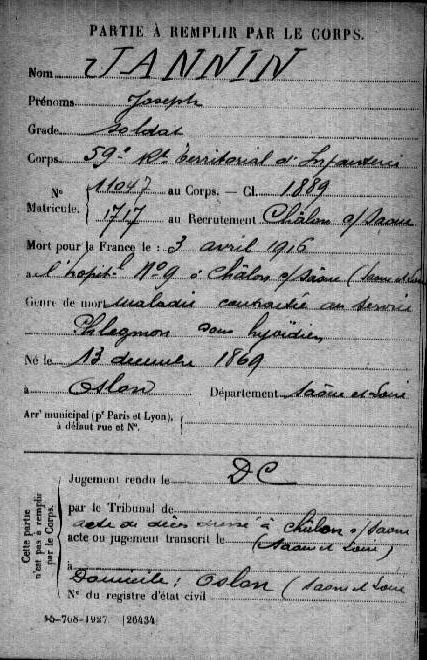 PARTIE À REMPLIR PAR LE CORPS.
Nom JANNIN
Prénoms Joseph
Grade Soldat
Corps 59e Rt territorial d'Infanterie
No Matricule. 11047 au Corps. — Cl. 1889
1717 au Recrutement Châlon s/Saône
Mort pour la France le : 3 avril 1916
à l'hopital No 9 à Châlon s/Saône (Saône et Loire
Genre de mort Maladie contractée au service
Phlegmon sous hyoïdien
Né le 13 décembre 1869
à Oslon Département Saône et Loire
Arrt municipal (pr Paris et Lyon),
à défaut rue et No.
Cette partie n'est pas à remplir par le Corps.
Jugement rendu le DC
par le Tribunal de
acte de décès dressé à Châlon s/Saône
acte ou jugement transcrit le (Saône et Loire)
à
Domicile : Oslon (Saône et Loire
No du registre d'état civil
-708-1927. [26434]